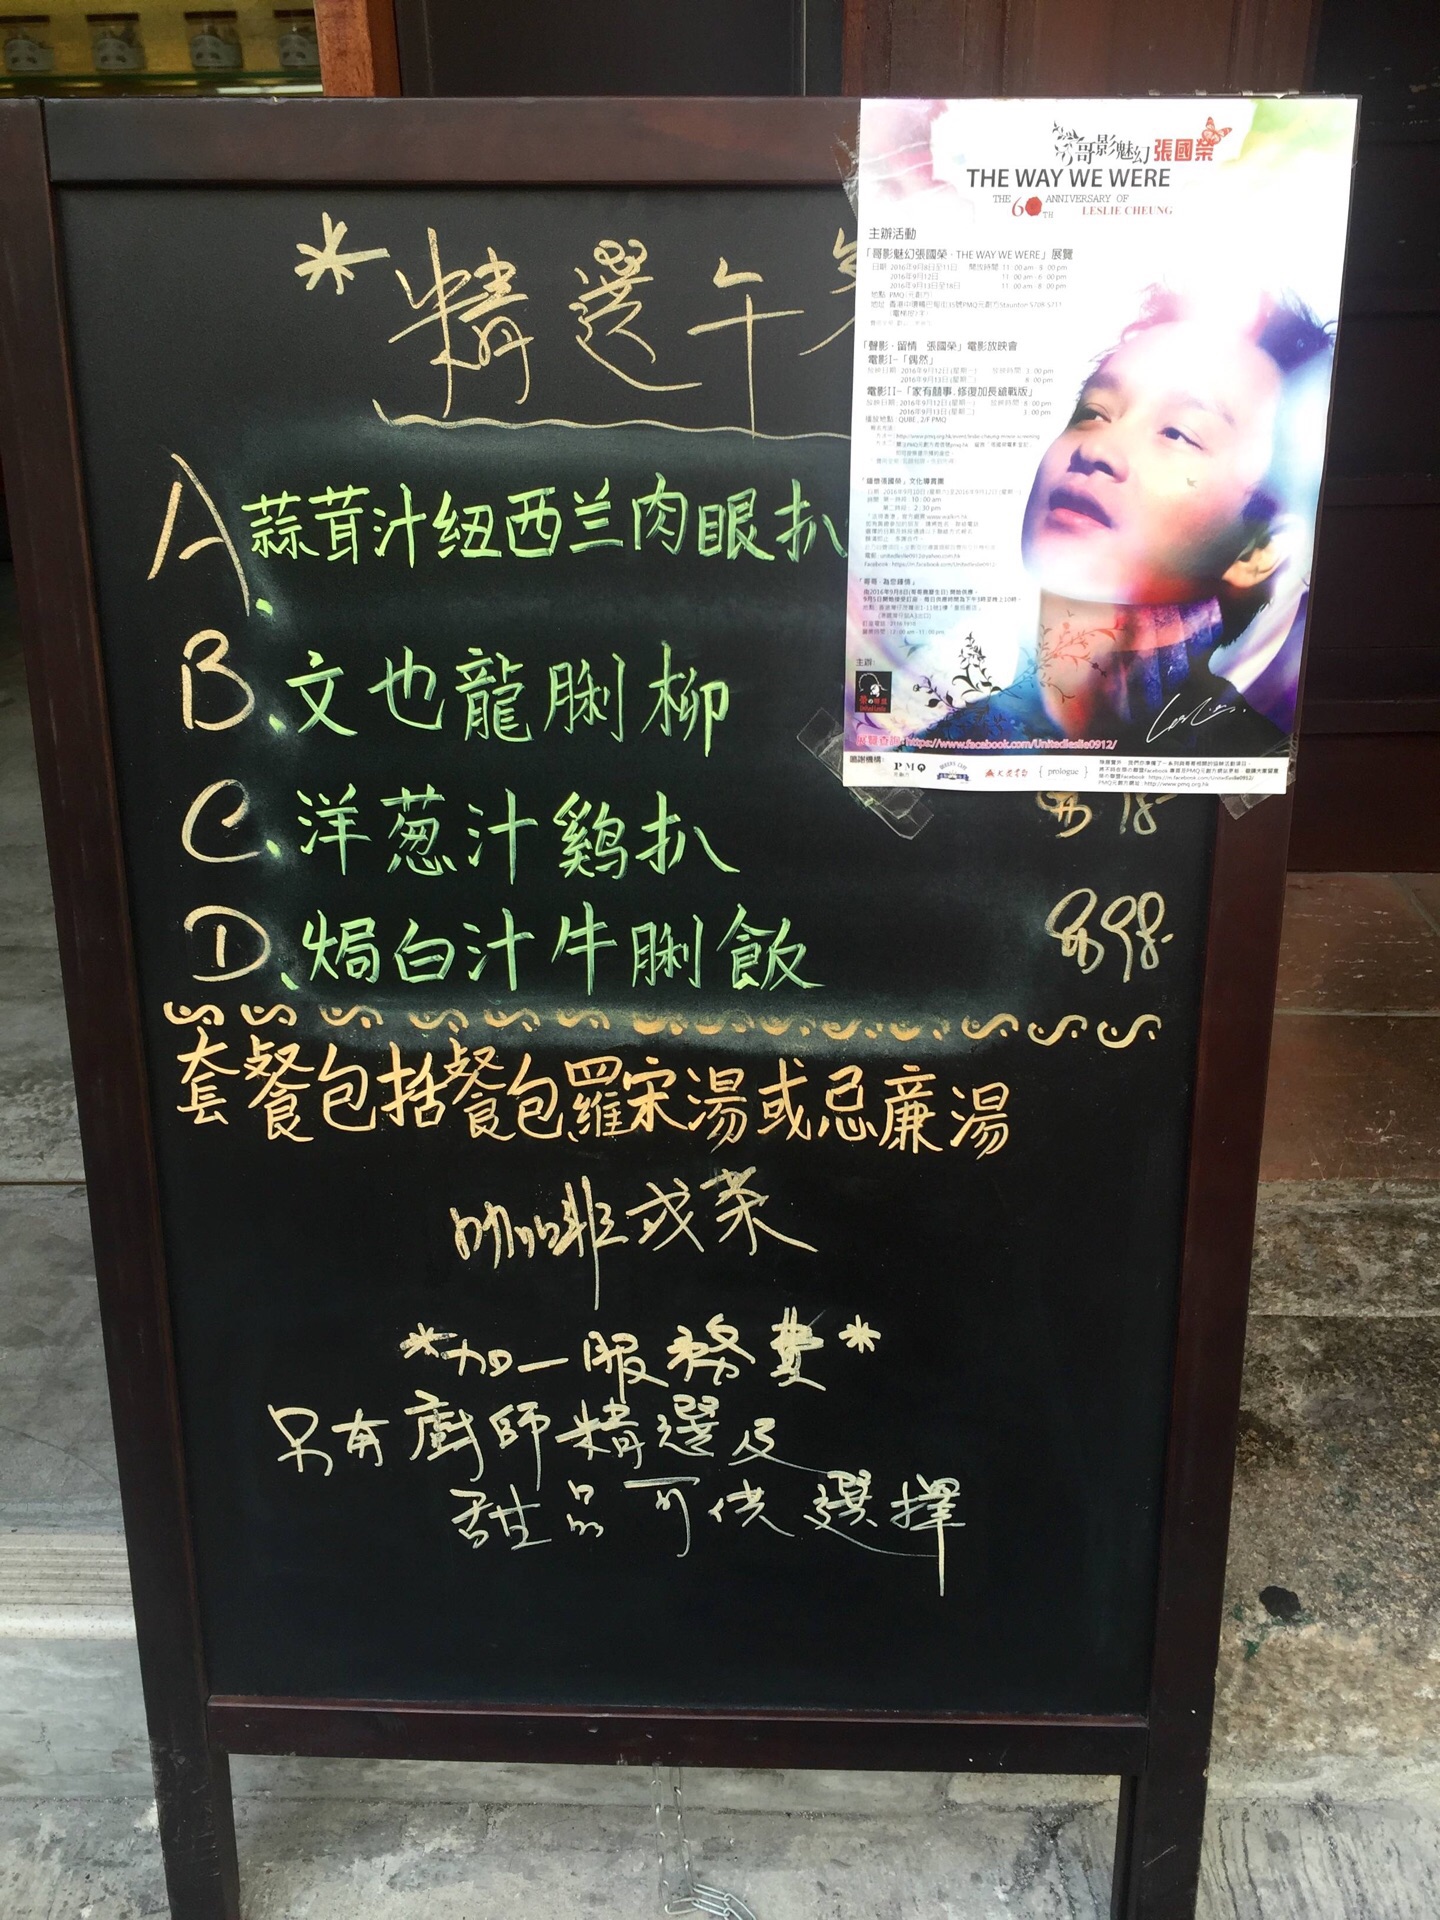 *精選午
A.蒜茸汁紐西兰肉眼扒
B.文也龍脷柳
C.洋葱汁鷄扒
D.焗白汁牛脷飯 $98-
套餐包括餐包羅宋湯或忌廉湯
咖啡或茶
*加一服務費*
只有廚師精選及
甜品可供選擇
哥影魅幻張國榮
THE WAY WE WERE
THE 60TH ANNIVERSARY OF LESLIE CHEUNG
主辦活動
「哥影魅幻張國榮 · THE WAY WE WERE」展覽
日期 2016年9月8日至11日 開放時間 11:00am-8:00pm
2016年9月12日 11:00am-6:00pm
2016年9月13日至18日 11:00am-8:00pm
地點 PMQ元創方
「聲影 · 留情 張國榮」電影放映會
電影I-「偶然」
放映日期: 2016年9月12日(星期一) 放映時間 3:00pm
2016年9月13日(星期二) 8:00pm
電影II-「家有囍事.修復加長縫戰版」
放映日期: 2016年9月12日(星期一) 放映時間 8:00pm
2016年9月13日(星期二) 3:00pm
播放地點: QUBE, 2/F PMQ
主辦:
展覽查詢: https://www.facebook.com/Unitedleslie0912/
鳴謝機構: PMQ 元創方 { prologue }